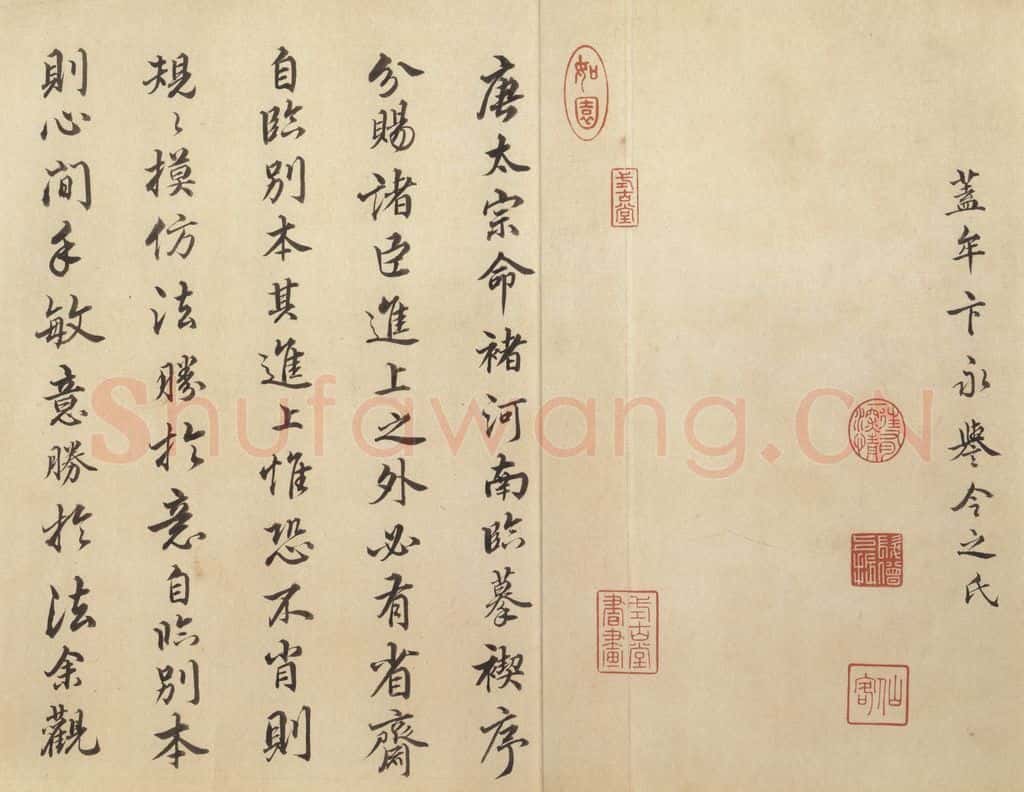 蓋牟卞永譽令之氏
仙客
式古堂書畫
式古堂
如園
唐太宗命褚河南臨摹禊序
分賜諸臣進上之外必有省齋
自臨別本其進上惟恐不肖則
規〻摸仿法勝於意自臨別本
則心閒手敏意勝於法余觀
Shufawang.CN